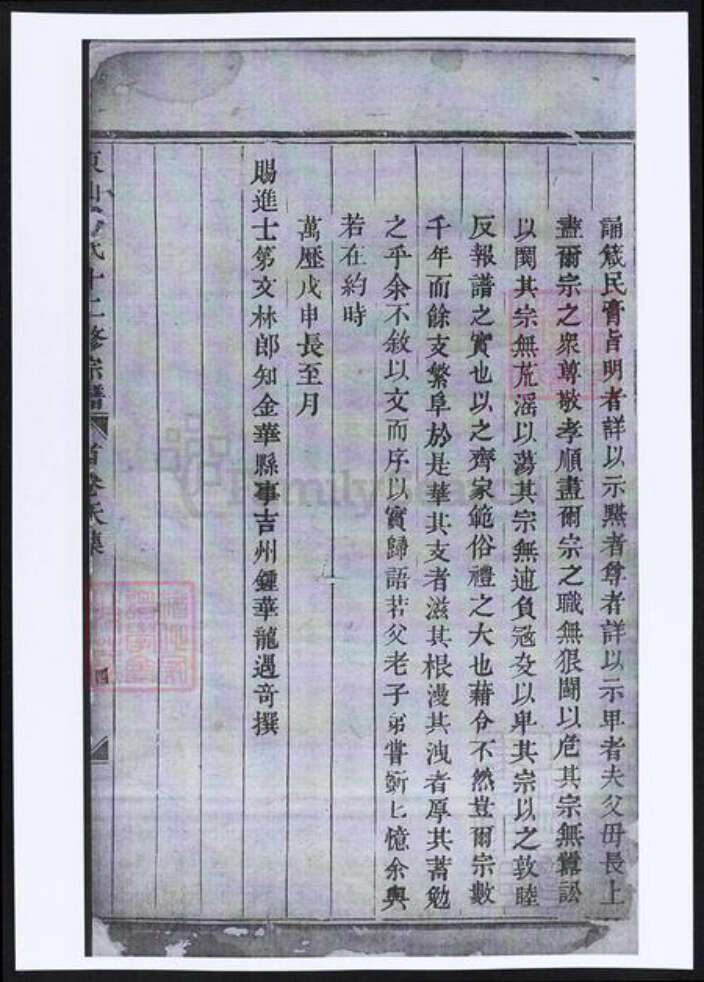 誦箴民膏旨明者詳以示黑者尊者詳以示卑者夫父毋長上
盡爾宗之衆尊敬孝順盡爾宗之職無狠鬪以危其宗無嚚訟
以閱其宗無荒滛以蕩其宗無逋負冦攻以卑其宗以之敦睦
反報譜之實也以之齊家範俗禮之大也藉令不然豈爾宗數
千年而餘支繁阜於是華其支者滋其根漫其洩者厚其蓄勉
之乎余不敘以文而序以實歸語若父老子弟嘗嶄匕憶余與
若在約時
萬歷戊申長至月
賜進士第文林郎知金華縣事吉州鍾華龍遇竒撰
氏十二修宗譜 首卷 集 四